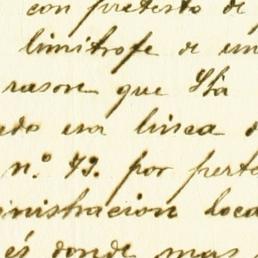 con pretesto de p
limitrofe de un
rason que Sta
ado esa linea d
n.º 79. por perte
inistracion loca
és donde mas